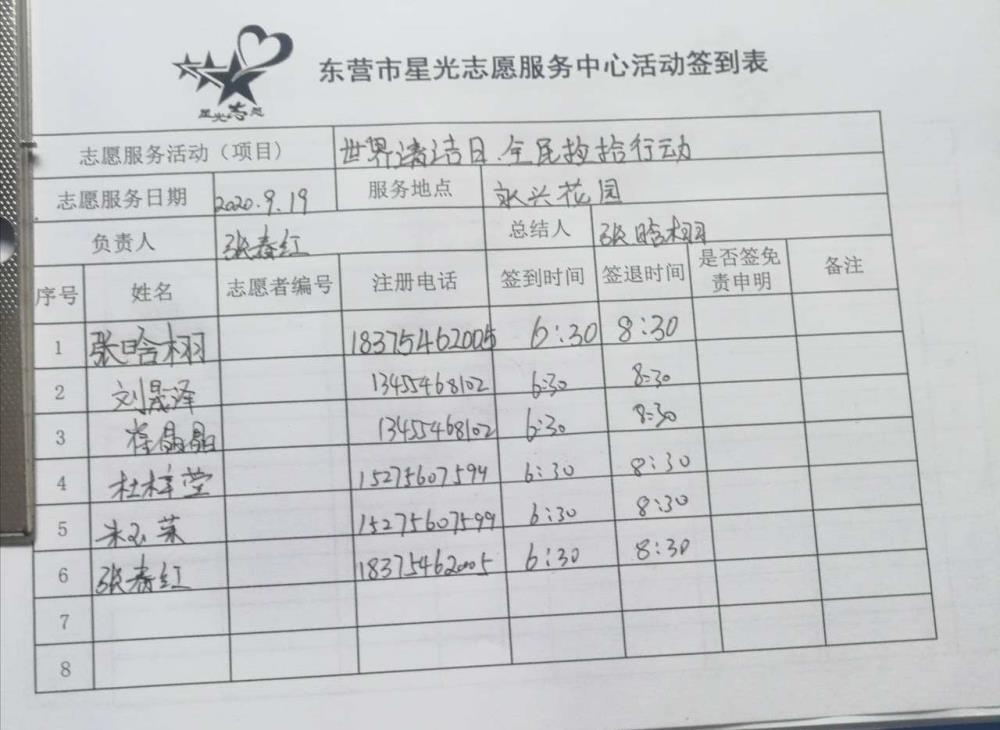 星光志愿
东营市星光志愿服务中心活动签到表
志愿服务活动（项目） 世界清洁日.全民捡拾行动
志愿服务日期 2020.9.19 服务地点 永兴花园
负责人 张春红 总结人 张晗栩
序号 姓名 志愿者编号 注册电话 签到时间 签退时间 是否签免责申明 备注
1 张晗栩 18375462005 6:30 8:30
2 刘晟泽 13455468102 6:30 8:30
3 晶晶 13455468102 6:30 8:30
4 杜梓萱 15275607599 6:30 8:30
5 朱玉英 15275607599 6:30 8:30
6 张春红 18375462005 6:30 8:30
7
8